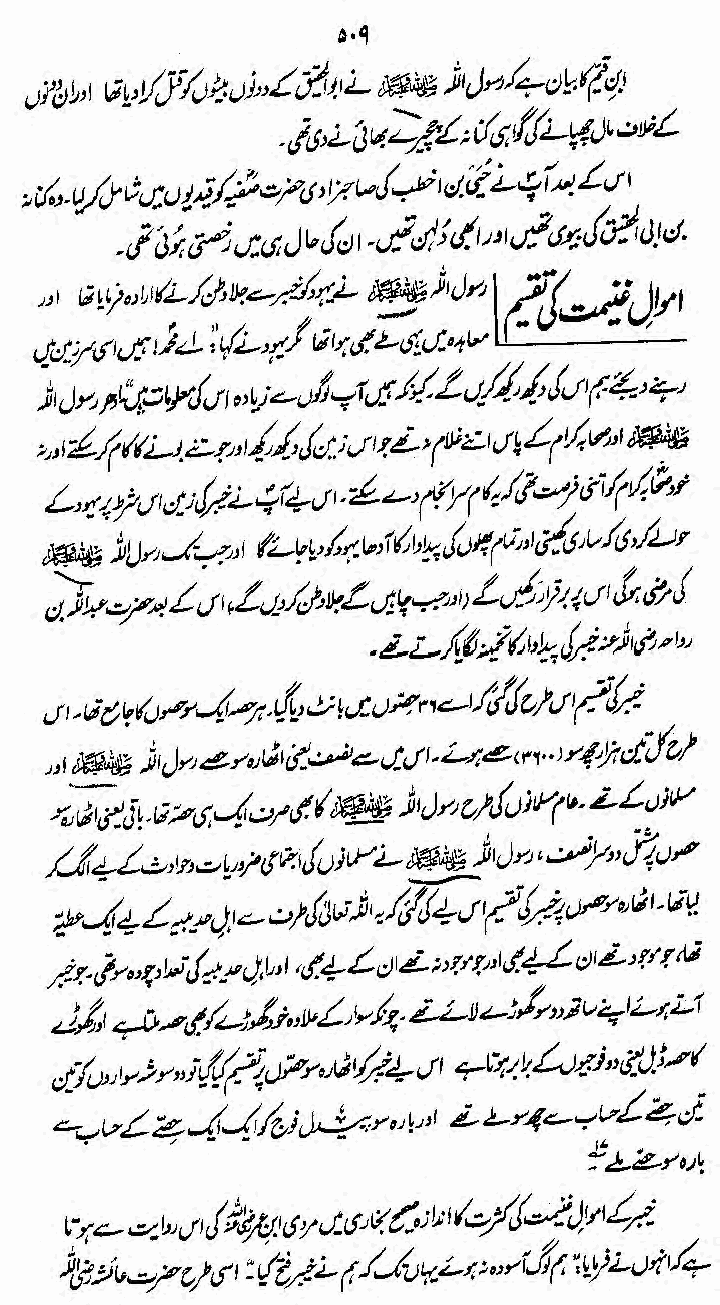 ۵۰۹
ابنِ قیّم کا بیان ہے کہ رسول اللہ ﷺ نے ابو الحقیق کے دونوں بیٹوں کو قتل کرا دیا تھا اور ان دونوں
کے خلاف مال چھپانے کی گواہی کنانہ کے چچیرے بھائی نے دی تھی۔
اس کے بعد آپؐ نے حُیَیّ بن اخطب کی صاحبزادی حضرت صفیہؓ کو قیدیوں میں شامل کر لیا۔ وہ کنانہ
بن ابی الحقیق کی بیوی تھیں اور ابھی دُلہن تھیں۔ ان کی حال ہی میں رخصتی ہوئی تھی۔
اموالِ غنیمت کی تقسیم
رسول اللہ ﷺ نے یہود کو خیبر سے جلا وطن کرنے کا ارادہ فرمایا تھا اور
معاہدہ میں یہی طے بھی ہوا تھا مگر یہود نے کہا: "اے محمدؐ! ہمیں اسی سرزمین میں
رہنے دیجئے ہم اس کی دیکھ ریکھ کریں گے۔ کیونکہ ہمیں آپ لوگوں سے زیادہ اس کی معلومات ہیں" ادھر رسول اللہ
ﷺ اور صحابہ کرام کے پاس اتنے غلام نہ تھے جو اس زمین کی دیکھ ریکھ اور جوتنے بونے کا کام کر سکتے اور نہ
خود صحابہؓ کرام کو اتنی فرصت تھی کہ یہ کام سرانجام دے سکتے۔ اس لیے آپؐ نے خیبر کی زمین اس شرط پر یہود کے
حوالے کر دی کہ ساری کھیتی اور تمام پھلوں کی پیداوار کا آدھا یہود کو دیا جائے گا اور جب تک رسول اللہ ﷺ
کی مرضی ہوگی اس پر برقرار رکھیں گے (اور جب چاہیں گے جلا وطن کر دیں گے) اس کے بعد حضرت عبد اللہ بن
رواحہ رضی اللہ عنہ خیبر کی پیداوار کا تخمینہ لگایا کرتے تھے۔
خیبر کی تقسیم اس طرح کی گئی کہ اسے ۳۶ حصّوں میں بانٹ دیا گیا۔ ہر حصہ ایک سو حصوں کا جامع تھا۔ اس
طرح کل تین ہزار چھ سو (۳۶۰۰) حصے ہوئے۔ اس میں سے نصف یعنی اٹھارہ سو حصے رسول اللہ ﷺ اور
مسلمانوں کے تھے۔ عام مسلمانوں کی طرح رسول اللہ ﷺ کا بھی صرف ایک ہی حصّہ تھا۔ باقی یعنی اٹھارہ سو
حصوں پر مشتمل دوسرا نصف، رسول اللہ ﷺ نے مسلمانوں کی اجتماعی ضروریات و حوادث کے لیے الگ کر
لیا تھا۔ اٹھارہ سو حصوں پر خیبر کی تقسیم اس لیے کی گئی کہ یہ اللہ تعالیٰ کی طرف سے اہلِ حدیبیہ کے لیے ایک عطیّہ
تھا، جو موجود تھے ان کے لیے بھی اور جو موجود نہ تھے ان کے لیے بھی، اور اہل حدیبیہ کی تعداد چودہ سو تھی۔ جو خیبر
آتے ہوئے اپنے ساتھ دو سو گھوڑے لائے تھے۔ چونکہ سوار کے علاوہ خود گھوڑے کو بھی حصہ ملتا ہے اور گھوڑے
کا حصہ ڈبل یعنی دو فوجیوں کے برابر ہوتا ہے اس لیے خیبر کو اٹھارہ سو حصّوں پر تقسیم کیا گیا تو دو سو شہ سواروں کو تین
تین حصّے کے حساب سے چھ سو ملے تھے اور بارہ سو پیدل فوج کو ایک ایک حِصّے کے حساب سے
بارہ سو حصّے ملے
خیبر کے اموالِ غنیمت کی کثرت کا اندازہ صحیح بخاری میں مروی ابنِ عمر رضی اللہ عنہ کی اس روایت سے ہوتا
ہے کہ انہوں نے فرمایا: "ہم لوگ آسودہ نہ ہوئے یہاں تک کہ ہم نے خیبر فتح کیا۔" اسی طرح حضرت عائشہ رضی اللہ